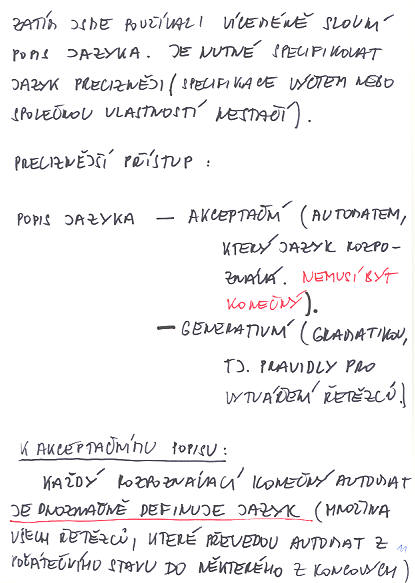 ZATÍM JSME POUŽÍVALI VÍCEMÉNĚ SLOVNÍ
POPIS JAZYKA. JE NUTNÉ SPECIFIKOVAT
JAZYK PRECIZNĚJI (SPECIFIKACE VÝČTEM NEBO
SPOLEČNOU VLASTNOSTÍ NESTAČÍ).
PRECIZNĚJŠÍ PŘÍSTUP :
POPIS JAZYKA — AKCEPTAČNÍ (AUTOMATEM,
KTERÝ JAZYK ROZPO-
ZNÁVÁ. NEMUSÍ BÝT
KONEČNÝ).
— GENERATIVNÍ (GRAMATIKOU,
TJ. PRAVIDLY PRO
VYTVÁŘENÍ ŘETĚZCŮ.)
K AKCEPTAČNÍMU POPISU :
KAŽDÝ ROZPOZNÁVACÍ KONEČNÝ AUTOMAT
JEDNOZNAČNĚ DEFINUJE JAZYK (MNOŽINA
VŠECH ŘETĚZCŮ, KTERÉ PŘEVEDOU AUTOMAT Z
POČÁTEČNÍHO STAVU DO NĚKTERÉHO Z KONCOVÝCH)